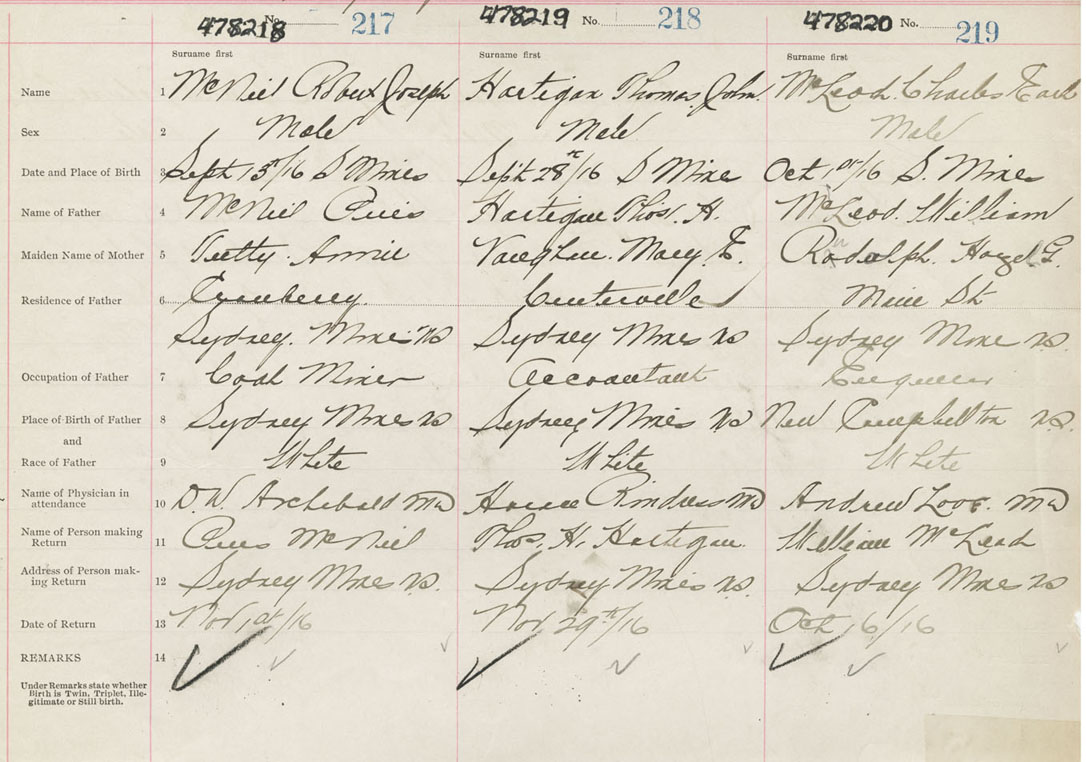 478218 No. 217 478219 No. 218 478220 No. 219
Surname first Surname first Surname first
Name 1 McNeil Joseph Hartigan Thomas John McLeod Charles Earl
Sex 2 Male Male Male
Date and Place of Birth 3 Sept 13th/16 S Mines Sept 28th/16 S Mines Oct 1st/16 S. Mines
Name of Father 4 McNeil Hartigan Thos. H. McLeod. William
Maiden Name of Mother 5 Annie Vaughan. Mary E. Rudolph. Hazel G.
Residence of Father 6 Cranberry. Centerville Main St
Sydney. Mines NS Sydney Mines NS Sydney Mines NS.
Occupation of Father 7 Coal Miner Accountant Engineer
Place of Birth of Father 8 Sydney Mines NS Sydney Mines NS New Campbellton NS.
and
Race of Father 9 White White White
Name of Physician in
attendance 10 D. W. Archibald MD MD Andrew Love. MD
Name of Person making
Return 11 McNeil Thos. H. Hartigan. William McLeod
Address of Person mak-
ing Return 12 Sydney Mines NS. Sydney Mines NS. Sydney Mines NS
Date of Return 13 Nov 1st/16 Nov 29th/16 Oct 16/16
REMARKS 14
Under Remarks state whether
Birth is Twin, Triplet, Ille-
gitimate or Still birth.